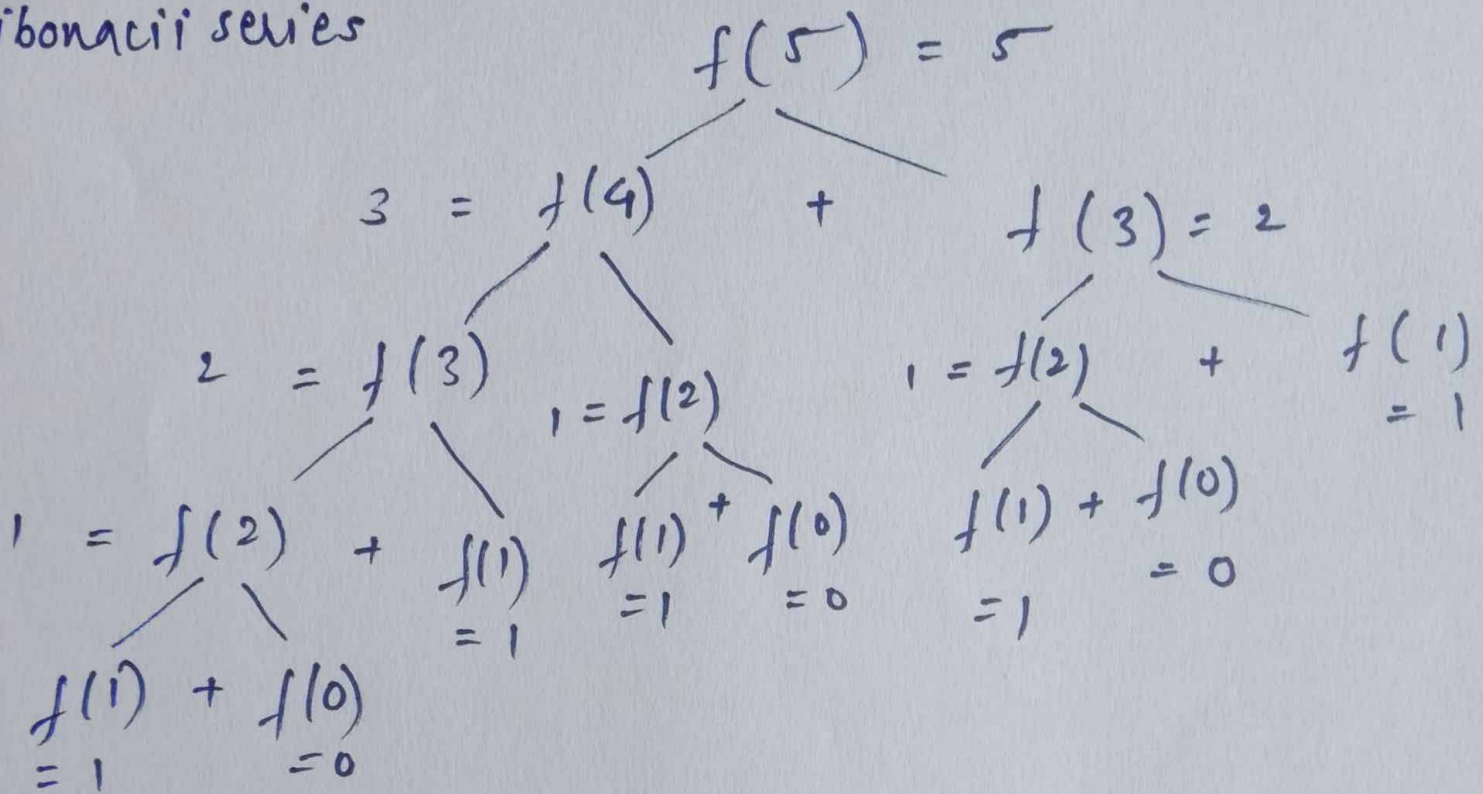 ibonacii series
f(5) = 5
3 = f(4) + f(3) = 2
2 = f(3) 1 = f(2) 1 = f(2) + f(1)
= 1
1 = f(2) + f(1) f(1) + f(0) f(1) + f(0)
= 1 = 1 = 0 = 1 = 0
f(1) + f(0)
= 1 = 0